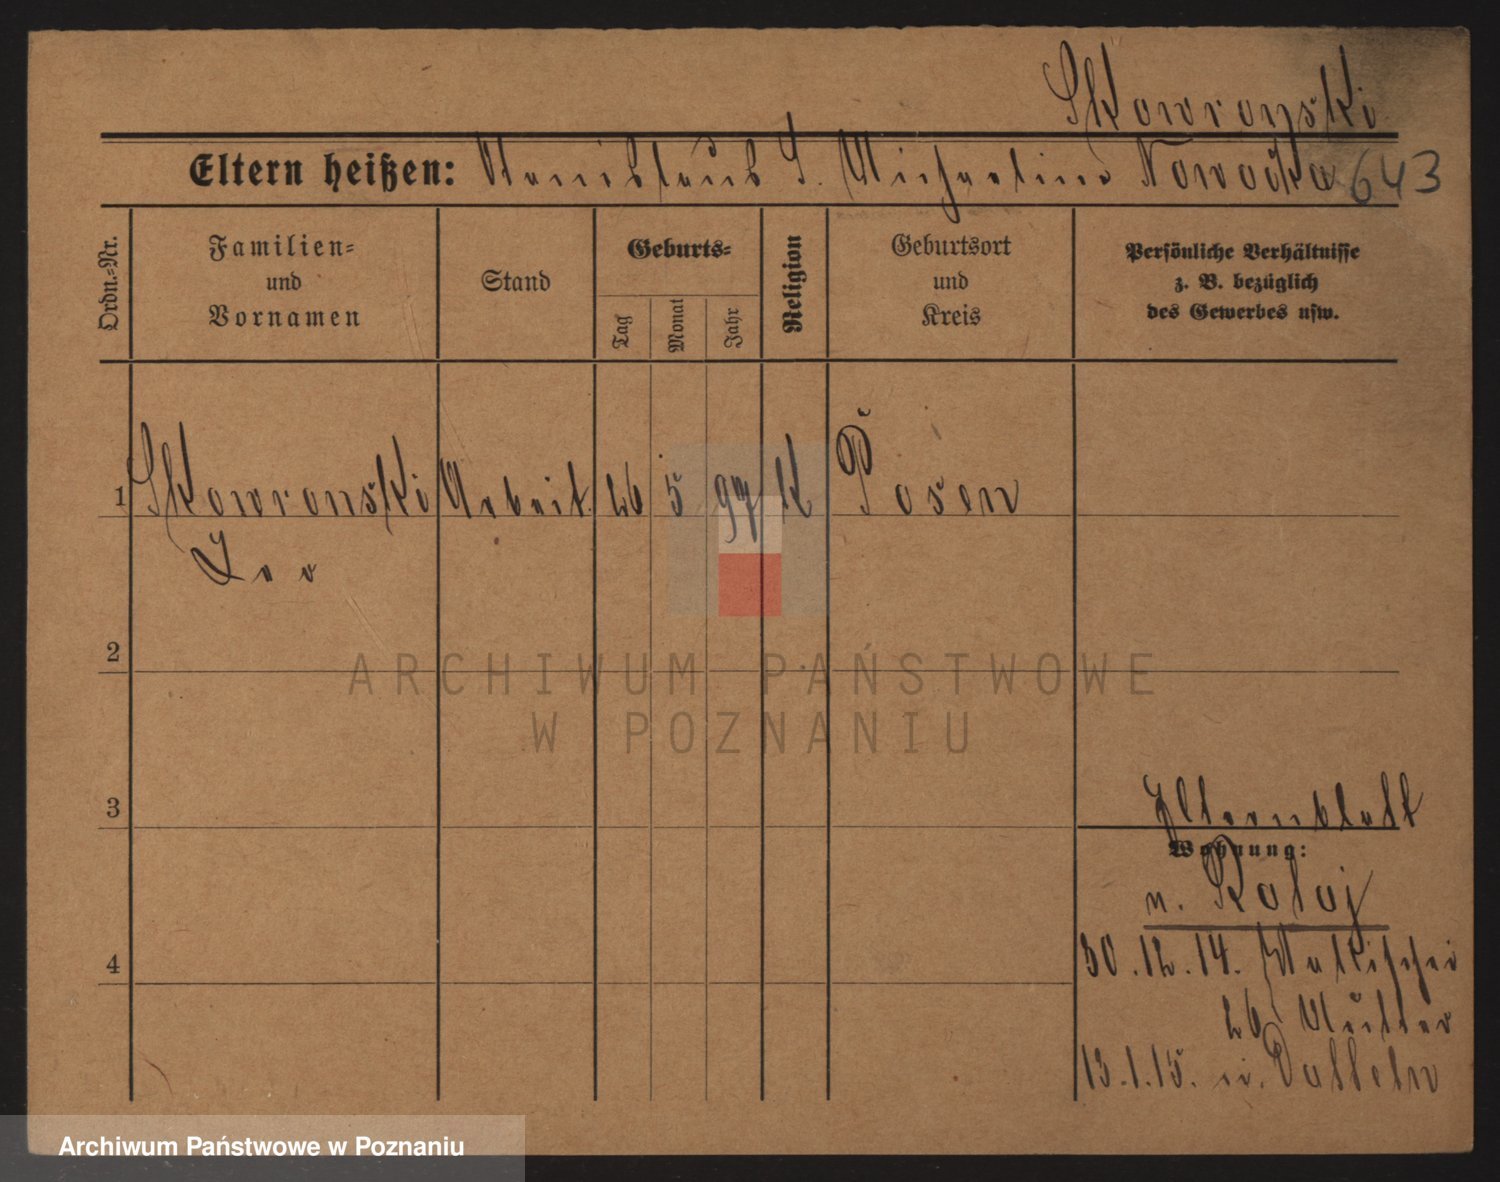 Skowronski
Eltern heißen: Stanislaus S. Michaelina Nowacka 643
Ordn.-Nr.
Familien-
und
Vornamen
Stand
Geburts-
Tag
Monat
Jahr
Religion
Geburtsort
und
Kreis
Persönliche Verhältnisse
z. B. bezüglich
des Gewerbes usw.
1 Skowronski Arbeit. 26 5 97 K Posen
Leo
2
ARCHIWUM PAŃSTWOWE
W POZNANIU
3
Elternblatt
Wohnung:
n. Kolaj
4
30.12.14. Wallischei
26 Mutter
13.1.15. n. Datteln
Archiwum Państwowe w Poznaniu